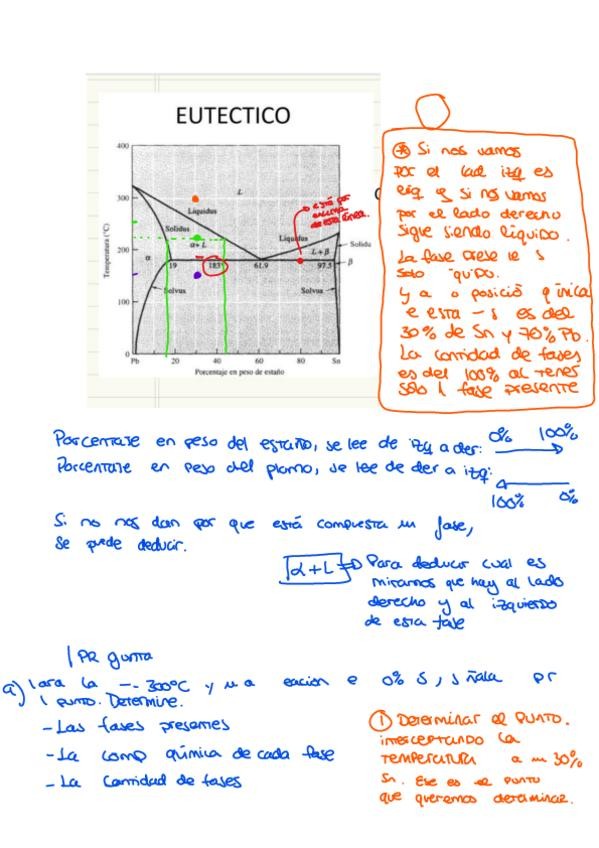 EUTECTICO
400
300
200
100
0
Temperatura (°C)
L
Liquidus
Solidus
α + L
α
19
183°
61.9
97.5
Liquidus
L + β
Solidu
β
Solvus
Solvus
Pb
20
40
60
80
Sn
Porcentaje en peso de estaño
está por
encima
de esta linea.
* Si nos vamos
por el lad izq es
liq y si nos vamos
por el lado derecho
Sigue siendo líquido.
La fase
Solo
y
esta es del
30% de Sn y 70% Pb.
La cantidad de fases
es del 100% al tener
solo 1 fase presente
Porcentaje en peso del estaño, se lee de izq a der: 0% 100%
Porcentaje en peso del plomo, se lee de der a izq:
100% 0%
Si no nos dan por que está compuesta un fase,
se puede deducir.
α+L Para deducir cual es
miramos que hay al lado
derecho y al izquierdo
de esta fase
a) 300°C y
1 punto. Determine.
- Las fases presentes
- La comp química de cada fase
- La Cantidad de fases
1 Determinar el punto.
interceptando la
temperatura a un 30%
Sn. Ese es el punto
que queremos determinar.